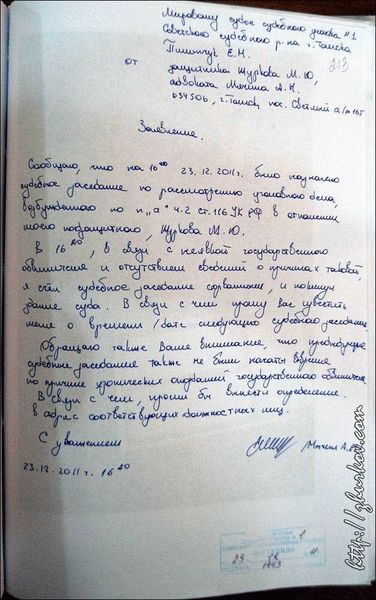 Мировому судье судебного участка №1
Советского судебного р-на г. Томска
Пишпчук Е.Н.
213
от защитника Журкова М.Ю,
адвоката Мячина А.Н.
634506, г. Томск, пос. Светлый а/я 165
Заявление.
Сообщаю, что на 16 00 23.12.2011г. было назначено
судебное заседание по рассмотрению уголовного дела,
возбужденного по п „а" ч.2 ст. 116 УК РФ в отношении
моего подзащитного, Журкова М.Ю.
В 16 20, в связи с неявкой государственного
обвинителя и отсутствием сведений о причинах таковой,
я счел судебное заседание сорванным, и покинул
здание суда. В связи с чем прошу вас известить
меня о времени / дате следующего судебного заседания
Обращаю также Ваше внимание, что предыдущие
судебные заседания также не были начаты вовремя
по причине хронических опозданий государственного обвинителя.
В связи с чем, просил бы вынести определение
в адрес соответствующих должностных лиц.
С уважением
Мячин А.Н.
23.12.2011 г. 16 20
1
23
http://zhurkov.com